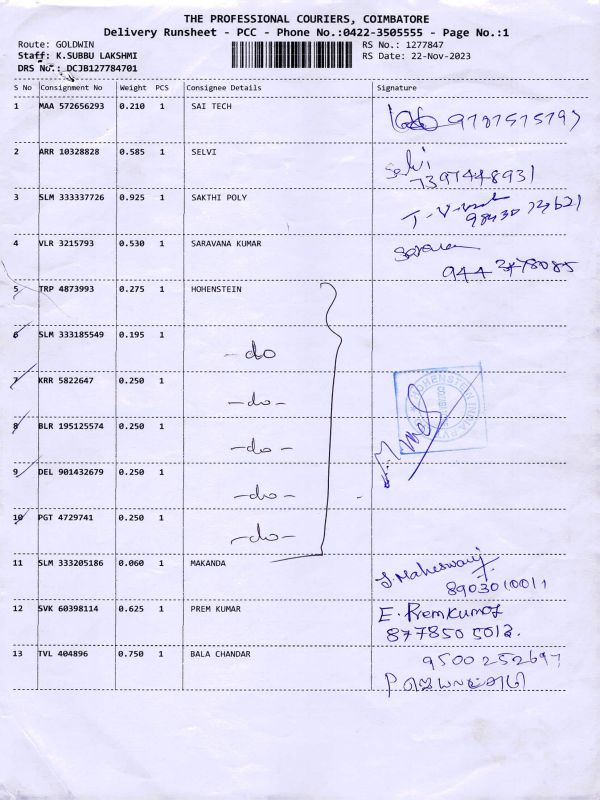 THE PROFESSIONAL COURIERS, COIMBATORE
Delivery Runsheet - PCC - Phone No.:0422-3505555 - Page No.:1
Route: GOLDWIN RS No.: 1277847
Staff: K.SUBBU LAKSHMI RS Date: 22-Nov-2023
DRS No.: DCJB127784701
S No Consignment No Weight PCS Consignee Details Signature
1 MAA 572656293 0.210 1 SAI TECH
2 ARR 10328828 0.585 1 SELVI Selvi
7397448931
3 SLM 333337726 0.925 1 SAKTHI POLY
4 VLR 3215793 0.530 1 SARAVANA KUMAR
944 3478085
5 TRP 4873993 0.275 1 HOHENSTEIN
6 SLM 333185549 0.195 1
-do
7 KRR 5822647 0.250 1
-do-
8 BLR 195125574 0.250 1
-do-
9 DEL 901432679 0.250 1
-do-
10 PGT 4729741 0.250 1
-do-
HOHENSTEIN INDIA PVT
11 SLM 333205186 0.060 1 MAKANDA J. Maheswari
8903010011
12 SVK 60398114 0.625 1 PREM KUMAR E. Premkumar
877850 5012.
13 TVL 404896 0.750 1 BALA CHANDAR 9500252697